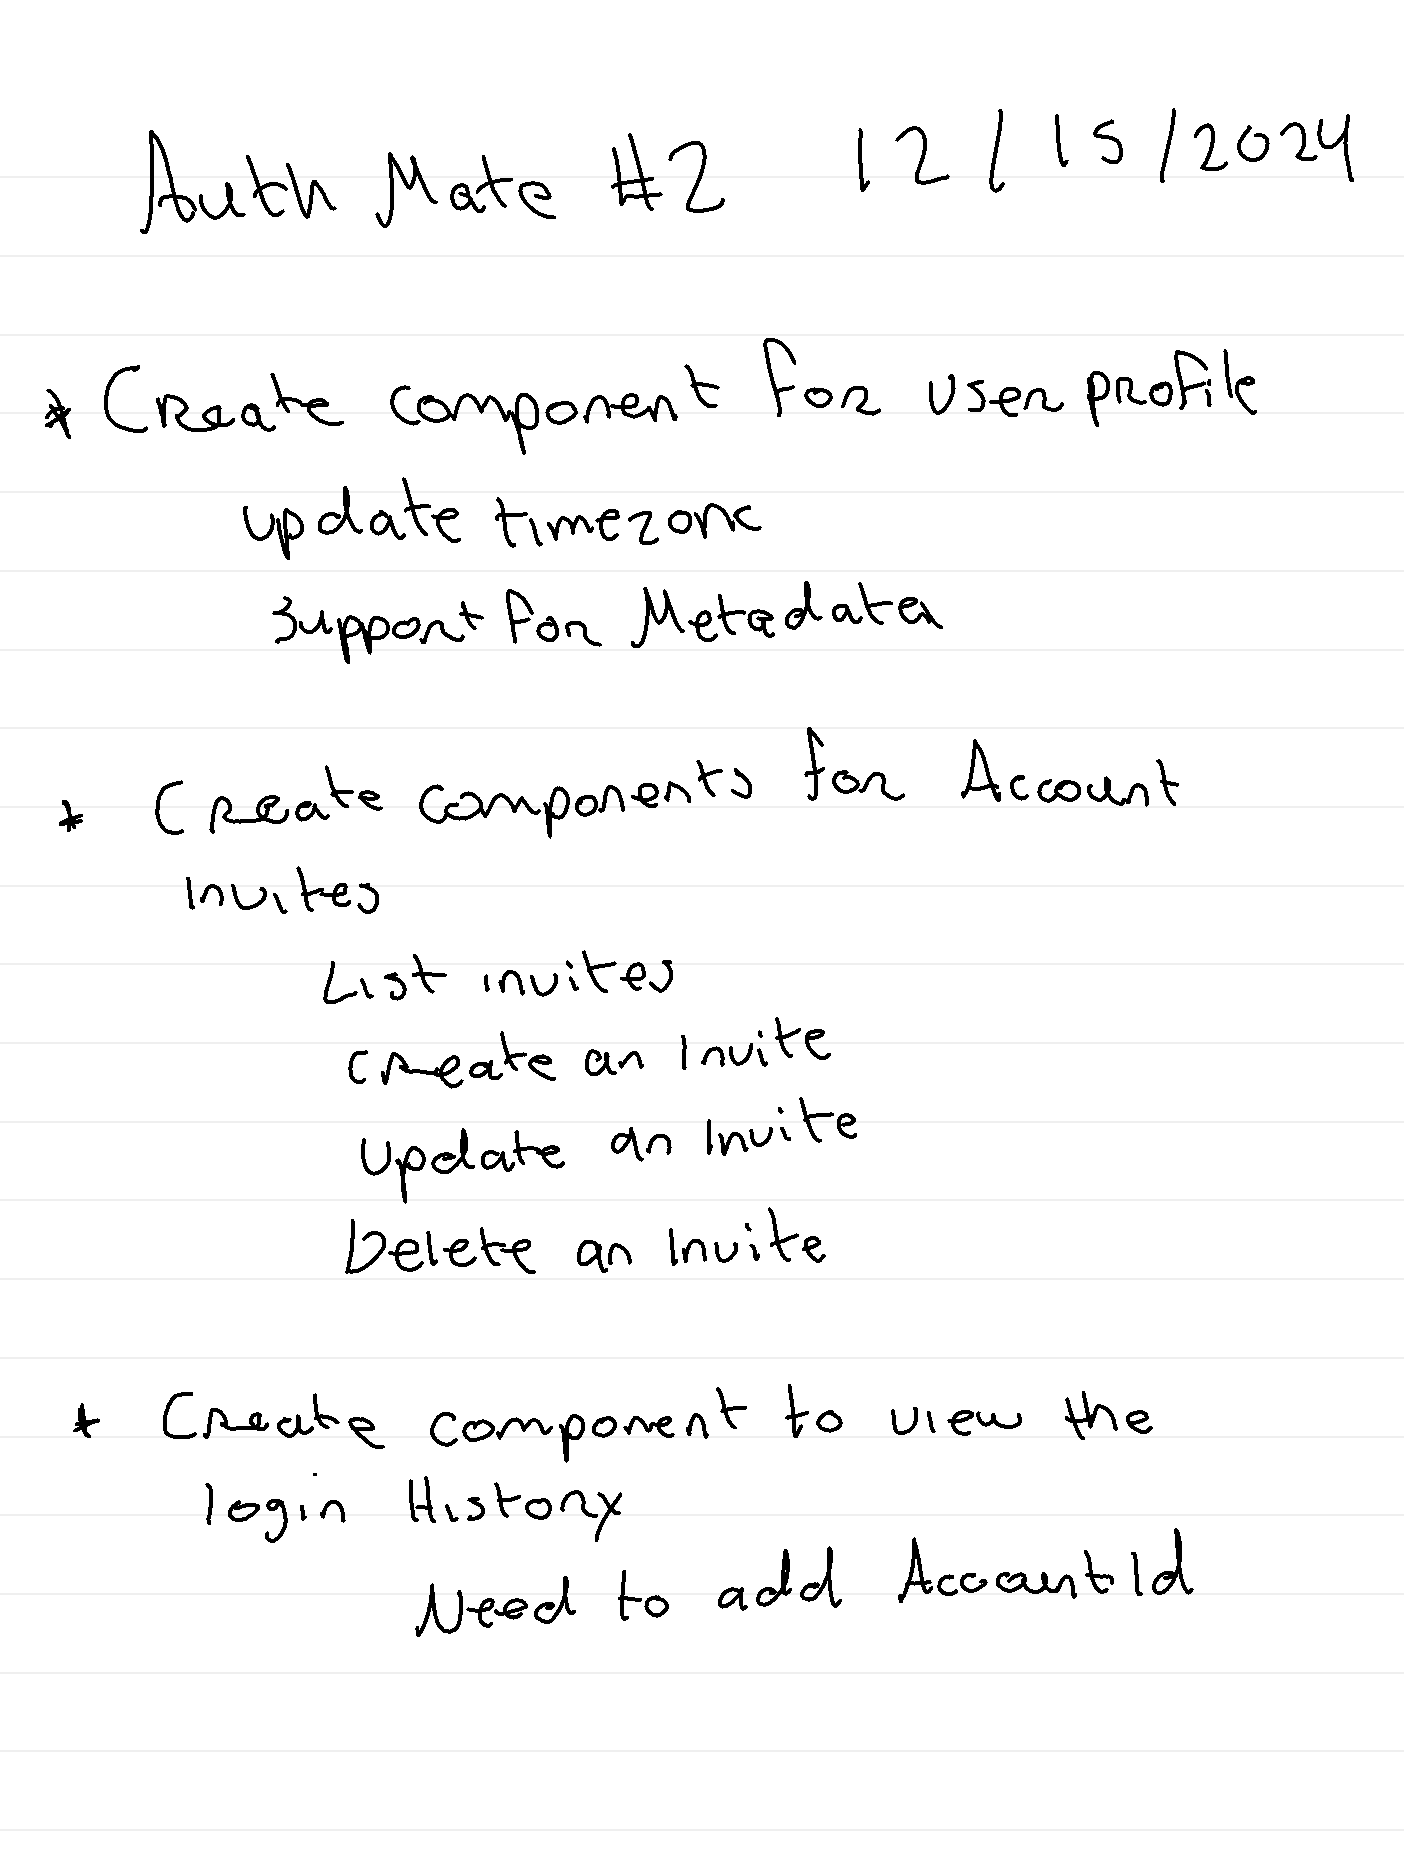 Auth Mate #2 12/15/2024
* Create component for user profile
update timezone
Support for Metadata
* Create components for Account
Invites
List invites
Create an Invite
Update an Invite
Delete an Invite
* Create component to view the
login History
Need to add AccountId